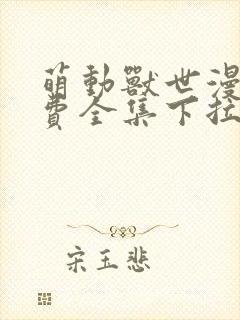 萌動獸世漫
費全集下拉
宋玉悲